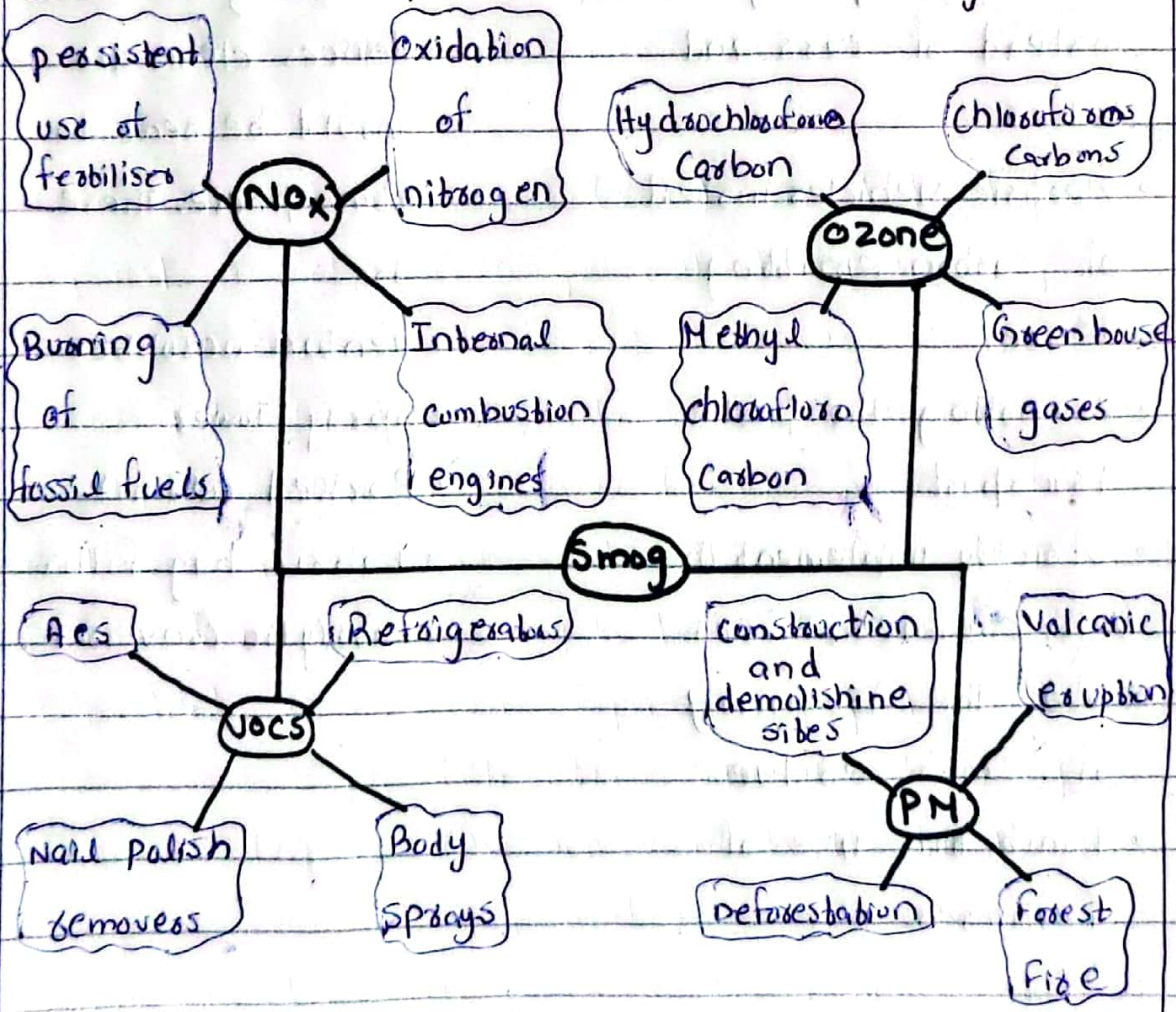 persistent
use of
fertiliser
Oxidation
of
nitrogen
NOx
Burning
of
fossil fuels
Internal
combustion
engines
Carbon
Carbons
Ozone
Methyl
Carbon
Greenhouse
gases
Smog
Acs
Refrigerators
VOCS
Nail Polish
removers
Body
Sprays
construction
and
demolishine
sites
Volcanic
eruption
PM
Deforestation
Forest
Fire